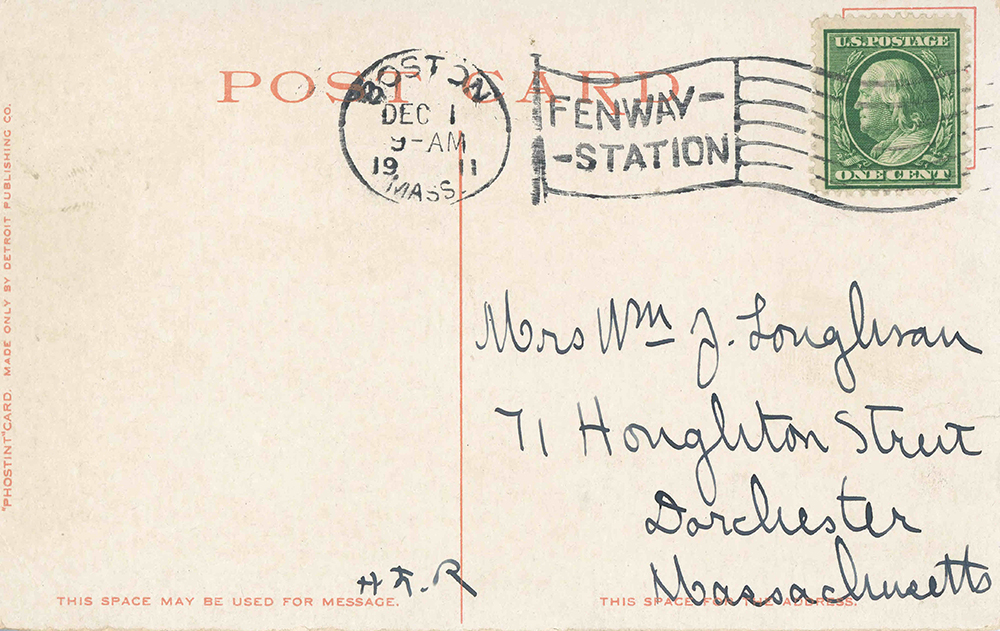 POST CARD
BOSTON
DEC 1
9-AM
19 11
MASS.
FENWAY-
-STATION
U.S. POSTAGE
ONE CENT
"PHOSTINT" CARD. MADE ONLY BY DETROIT PUBLISHING CO.
Mrs Wm J. Loughran
71 Houghton Street
Dorchester
Massachusetts
H. R
THIS SPACE MAY BE USED FOR MESSAGE.
THIS SPACE FOR THE ADDRESS.